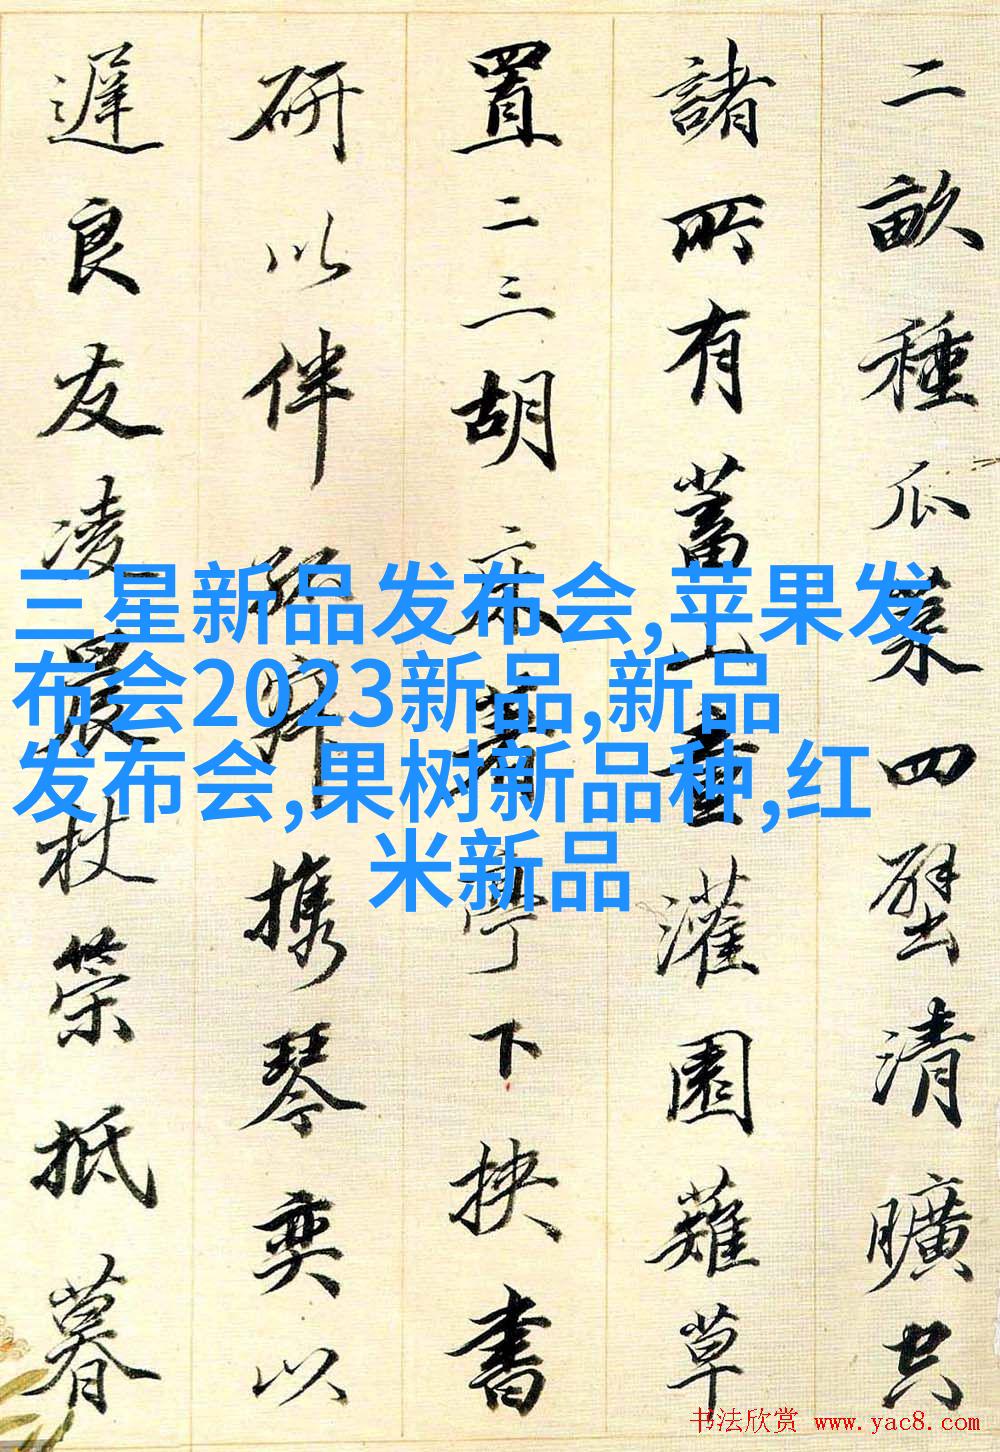 三星新品发布会,苹果发
布会2023新品,新品
发布会,果树新品种,红
米新品
二畝種瓜菜四壁清曠空
諸所有蓄山童灌園薙草
置二三胡床着亭下挾書
研以伴孤寂携琴奕以
遲良友凌晨杖策抵暮
书法欣赏 www.yac8.com